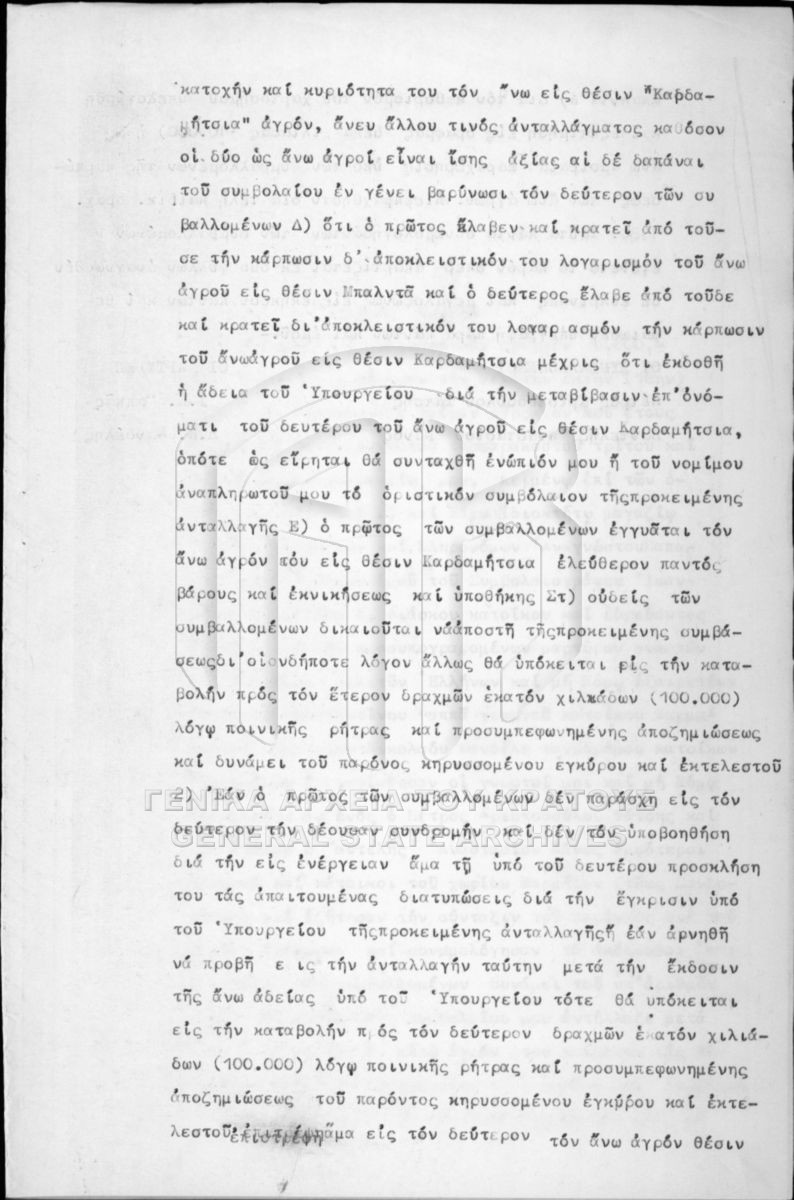 κατοχήν καί κυριότητα του τόν ἄνω εἰς θέσιν "Καρδα-
μήτσια" ἀγρόν, ἄνευ ἄλλου τινός ἀνταλλάγματος καθόσον
οἱ δύο ὡς ἄνω ἀγροί εἶναι ἴσης ἀξίας αἱ δέ δαπάναι
τοῦ συμβολαίου ἐν γένει βαρύνωσι τόν δεύτερον τῶν συ
βαλλομένων Δ) ὅτι ὁ πρῶτος ἔλαβεν καί κρατεῖ ἀπό τοῦ-
σε τήν κάρπωσιν δ' ἀποκλειστικόν του λογαρισμόν τοῦ ἄνω
ἀγροῦ εἰς θέσιν Μπαλντᾶ καί ὁ δεύτερος ἔλαβε ἀπό τοῦδε
καί κρατεῖ δι'ἀποκλειστικόν του λογαρ ασμόν τήν κάρπωσιν
τοῦ ἄνωἀγροῦ εἰς θέσιν Καρδαμήτσια μέχρις ὅτι ἐκδοθῆ
ἡ ἄδεια τοῦ Ὑπουργείου διά τήν μεταβίβασιν ἐπ'ὀνό-
ματι τοῦ δευτέρου τοῦ ἄνω ἀγροῦ εἰς θέσιν Καρδαμήτσια,
ὁπότε ὡς εἴρηται θά συνταχθῆ ἐνώπιόν μου ἤ τοῦ νομίμου
ἀναπληρωτοῦ μου τό ὁριστικόν συμβόλαιον τῆςπροκειμένης
ἀνταλλαγῆς Ε) ὁ πρῶτος τῶν συμβαλλομένων ἐγγυᾶται τόν
ἄνω ἀγρόν πόυ εἰς θέσιν Καρδαμήτσια ἐλεύθερον παντός
βάρους καί ἐκνικήσεως καί ὑποθήκης Στ) οὐδείς τῶν
συμβαλλομένων δικαιοῦται νάἀποστῆ τῆςπροκειμένης συμβά-
σεωςδι'οἱονδήποτε λόγον ἄλλως θά ὑπόκειται εἰς τήν κατα-
βολήν πρός τόν ἕτερον δραχμῶν ἑκατόν χιλιάδων (100.000)
λόγῳ ποινικῆς ρήτρας καί προσυμπεφωνημένης ἀποζημιώσεως
καί δυνάμει τοῦ παρόνος κηρυσσομένου εγκύρου καί ἐκτελεστοῦ
Ζ) Ἐάν ὁ πρῶτος τῶν συμβαλλομένων δέν παράσχη εἰς τόν
ΓΕΝΙΚΑ ΑΡΧΕΙΑ ΤΟΥ ΚΡΑΤΟΥΣ
δεύτερον τήν δέουσαν συνδρομήν καί δέν τόν ὑποβοηθήση
GENERAL STATE ARCHIVES
διά τήν εἰς ἐνέργειαν ἅμα τῇ ὑπό τοῦ δευτέρου προσκλήση
του τάς ἀπαιτουμένας διατυπώσεις διά τήν ἔγκρισιν ὑπό
τοῦ Ὑπουργείου τῆςπροκειμένης ἀνταλλαγῆςἤ ἐάν ἀρνηθῆ
νά προβῆ ε ις τήν ἀνταλλαγήν ταύτην μετά τήν ἔκδοσιν
τῆς ἄνω ἀδείας ὑπό τοῦ Ὑπουργείου τότε θά ὑπόκειται
εἰς τήν καταβολήν πρός τόν δεύτερον δραχμῶν ἑκατόν χιλιά-
δων (100.000) λόγῳ ποινικῆς ρήτρας καί προσυμπεφωνημένης
ἀποζημιώσεως τοῦ παρόντος κηρυσσομένου ἐγκύρου καί ἐκτε-
λεστοῦ ἐπιστρέφη ἅμα εἰς τόν δεύτερον τόν ἄνω ἀγρόν θέσιν